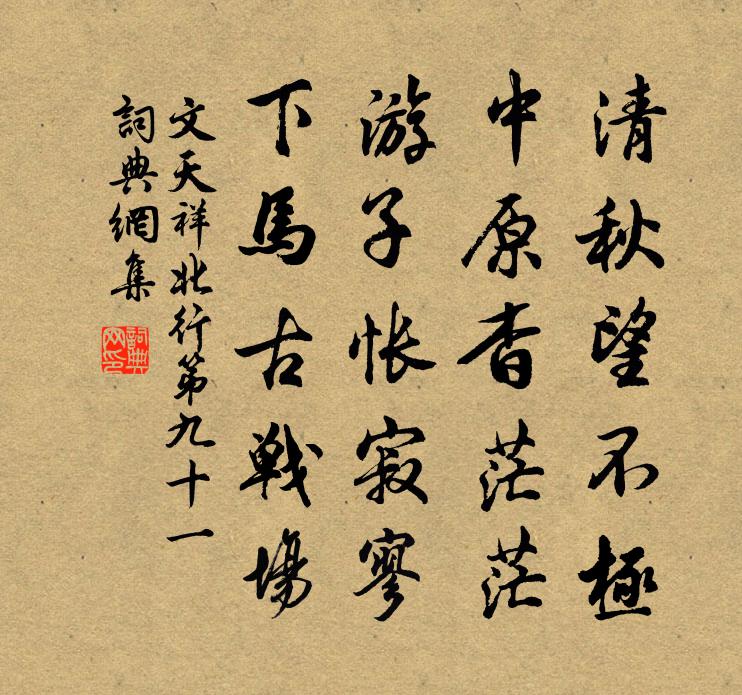 清秋望不極
中原杳茫茫
游子悵寂寥
下馬古戰場
文天祥北行第九十一
詞典網集
詞典网印